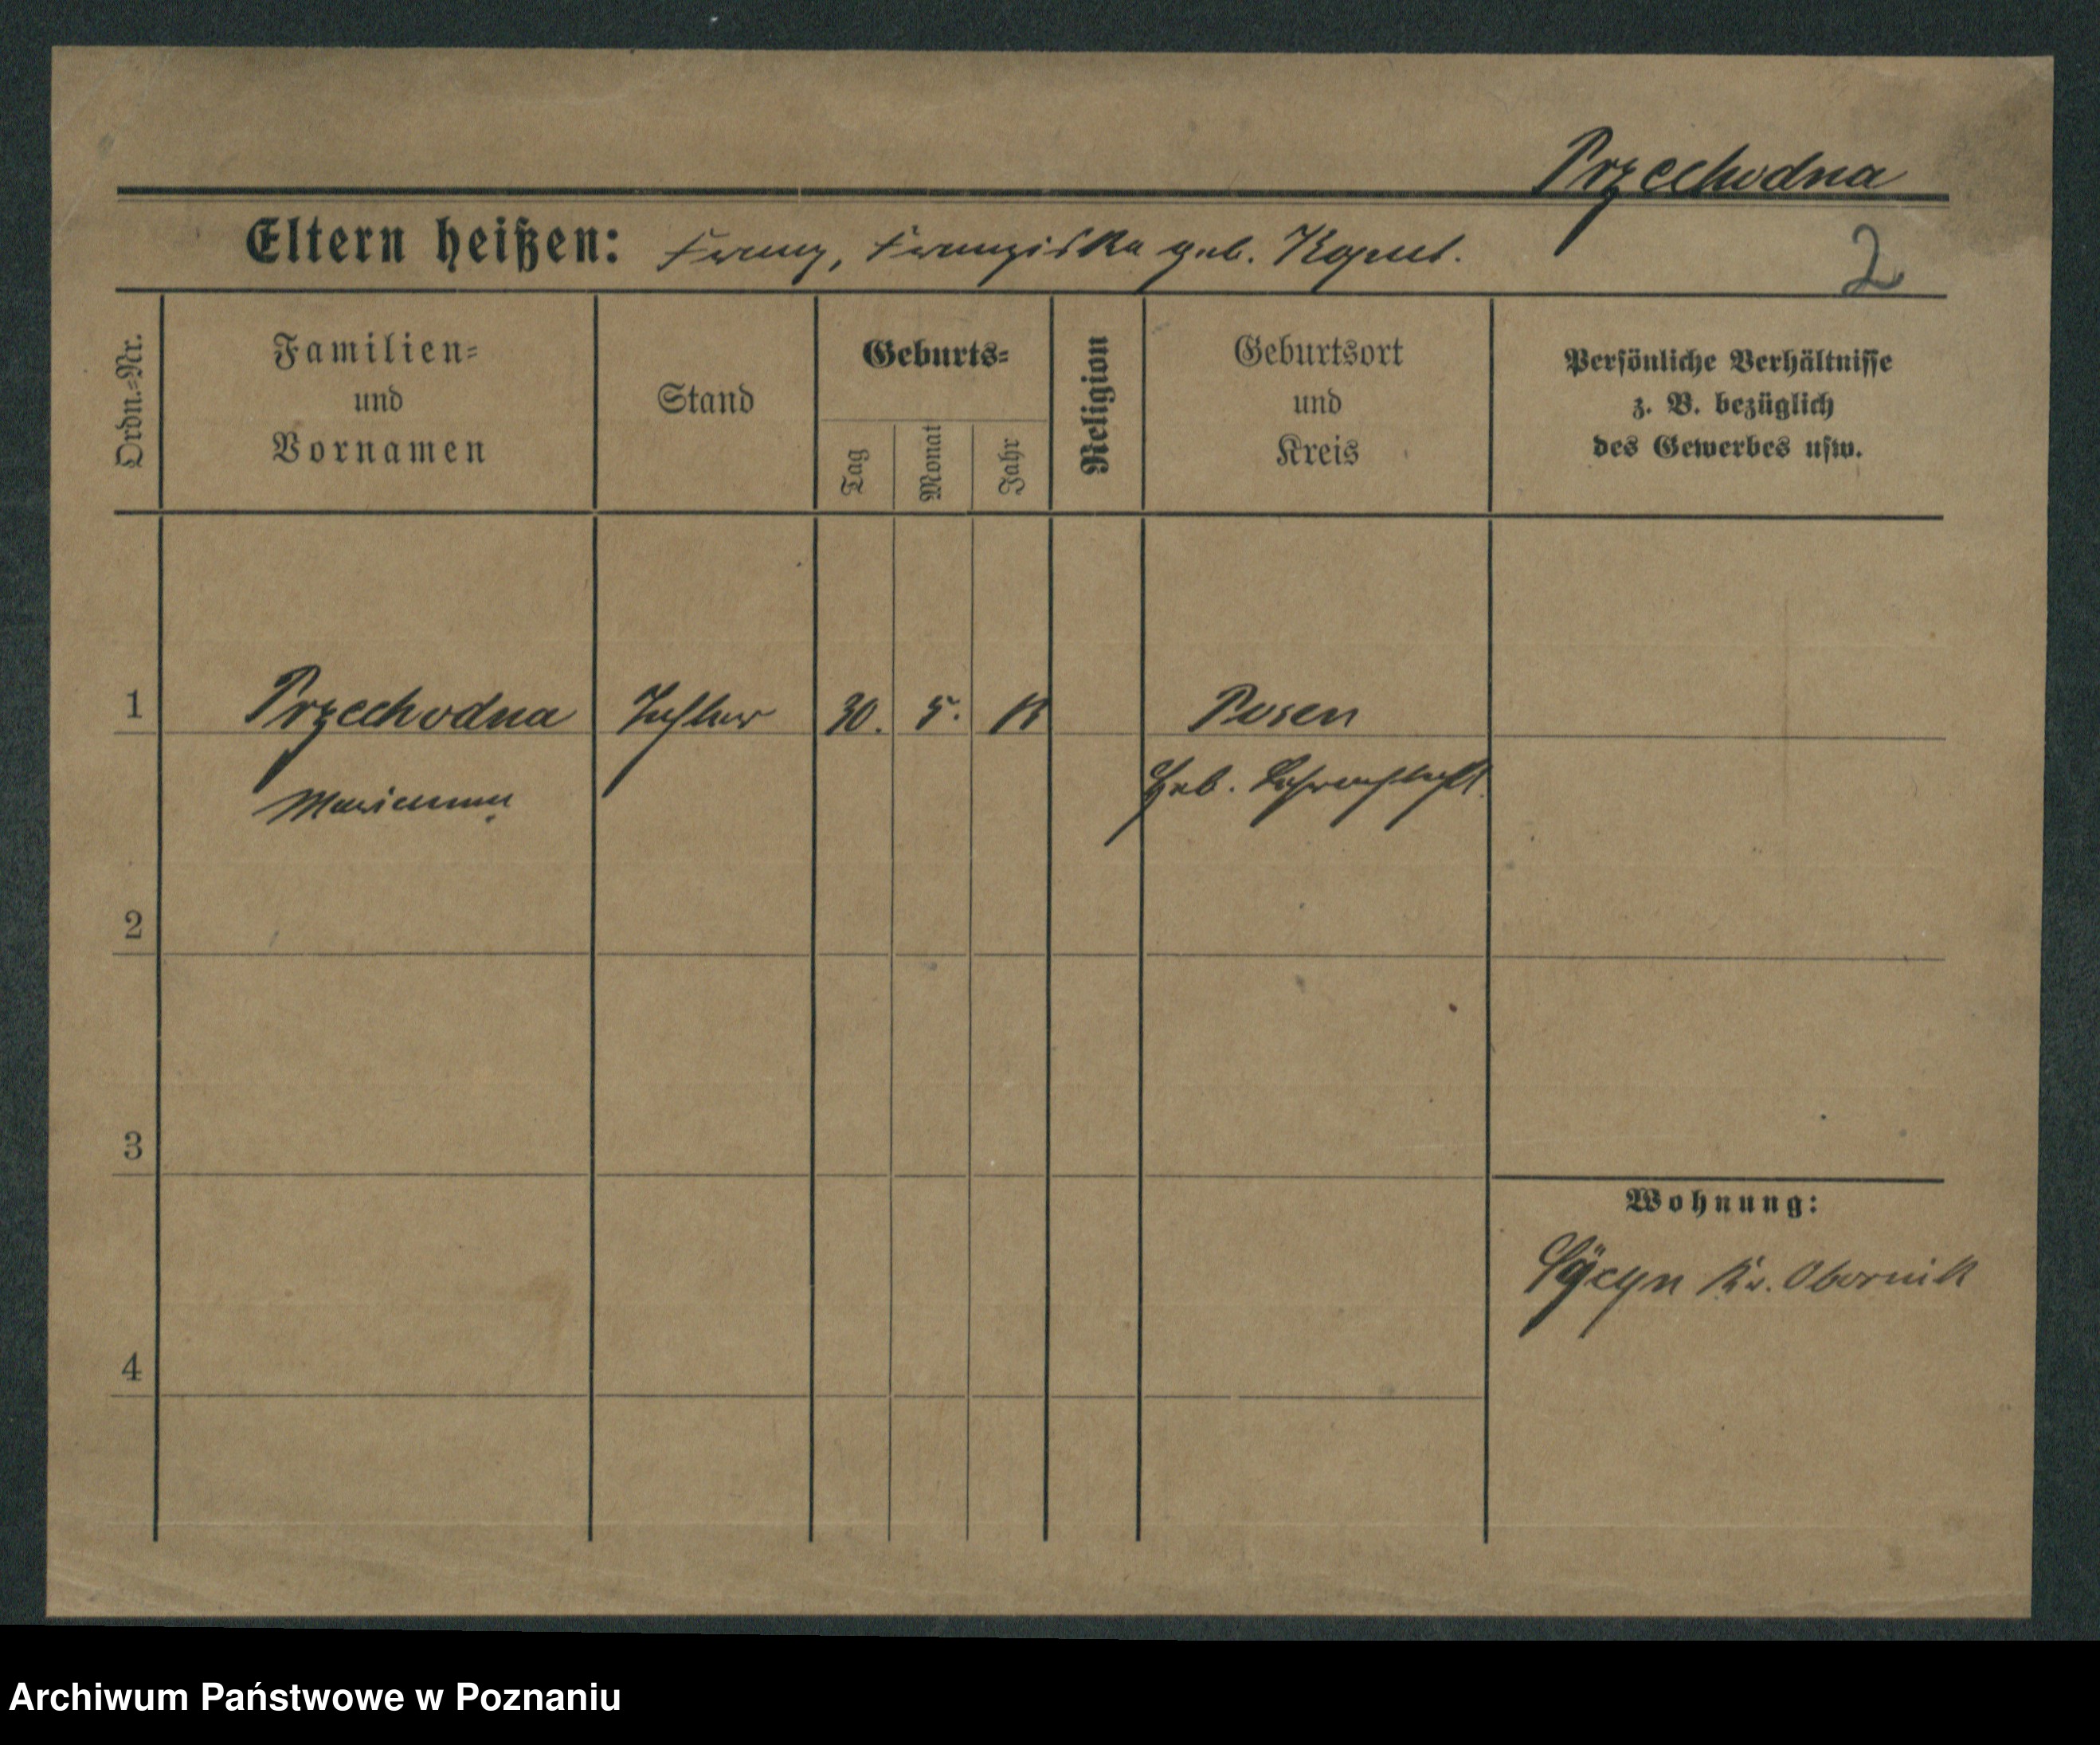 Przechodna
Eltern heißen: Franz, Franziska geb.
2
Ordn.=Nr.
Familien=
und
Vornamen
Stand
Geburts=
Tag
Monat
Jahr
Religion
Geburtsort
und
Kreis
Persönliche Verhältnisse
z. B. bezüglich
des Gewerbes usw.
1 Przechodna Tochter 30. 5. Posen
Marianna
Geb.
2
3
Wohnung:
Kr. Obornik
4
Archiwum Państwowe w Poznaniu